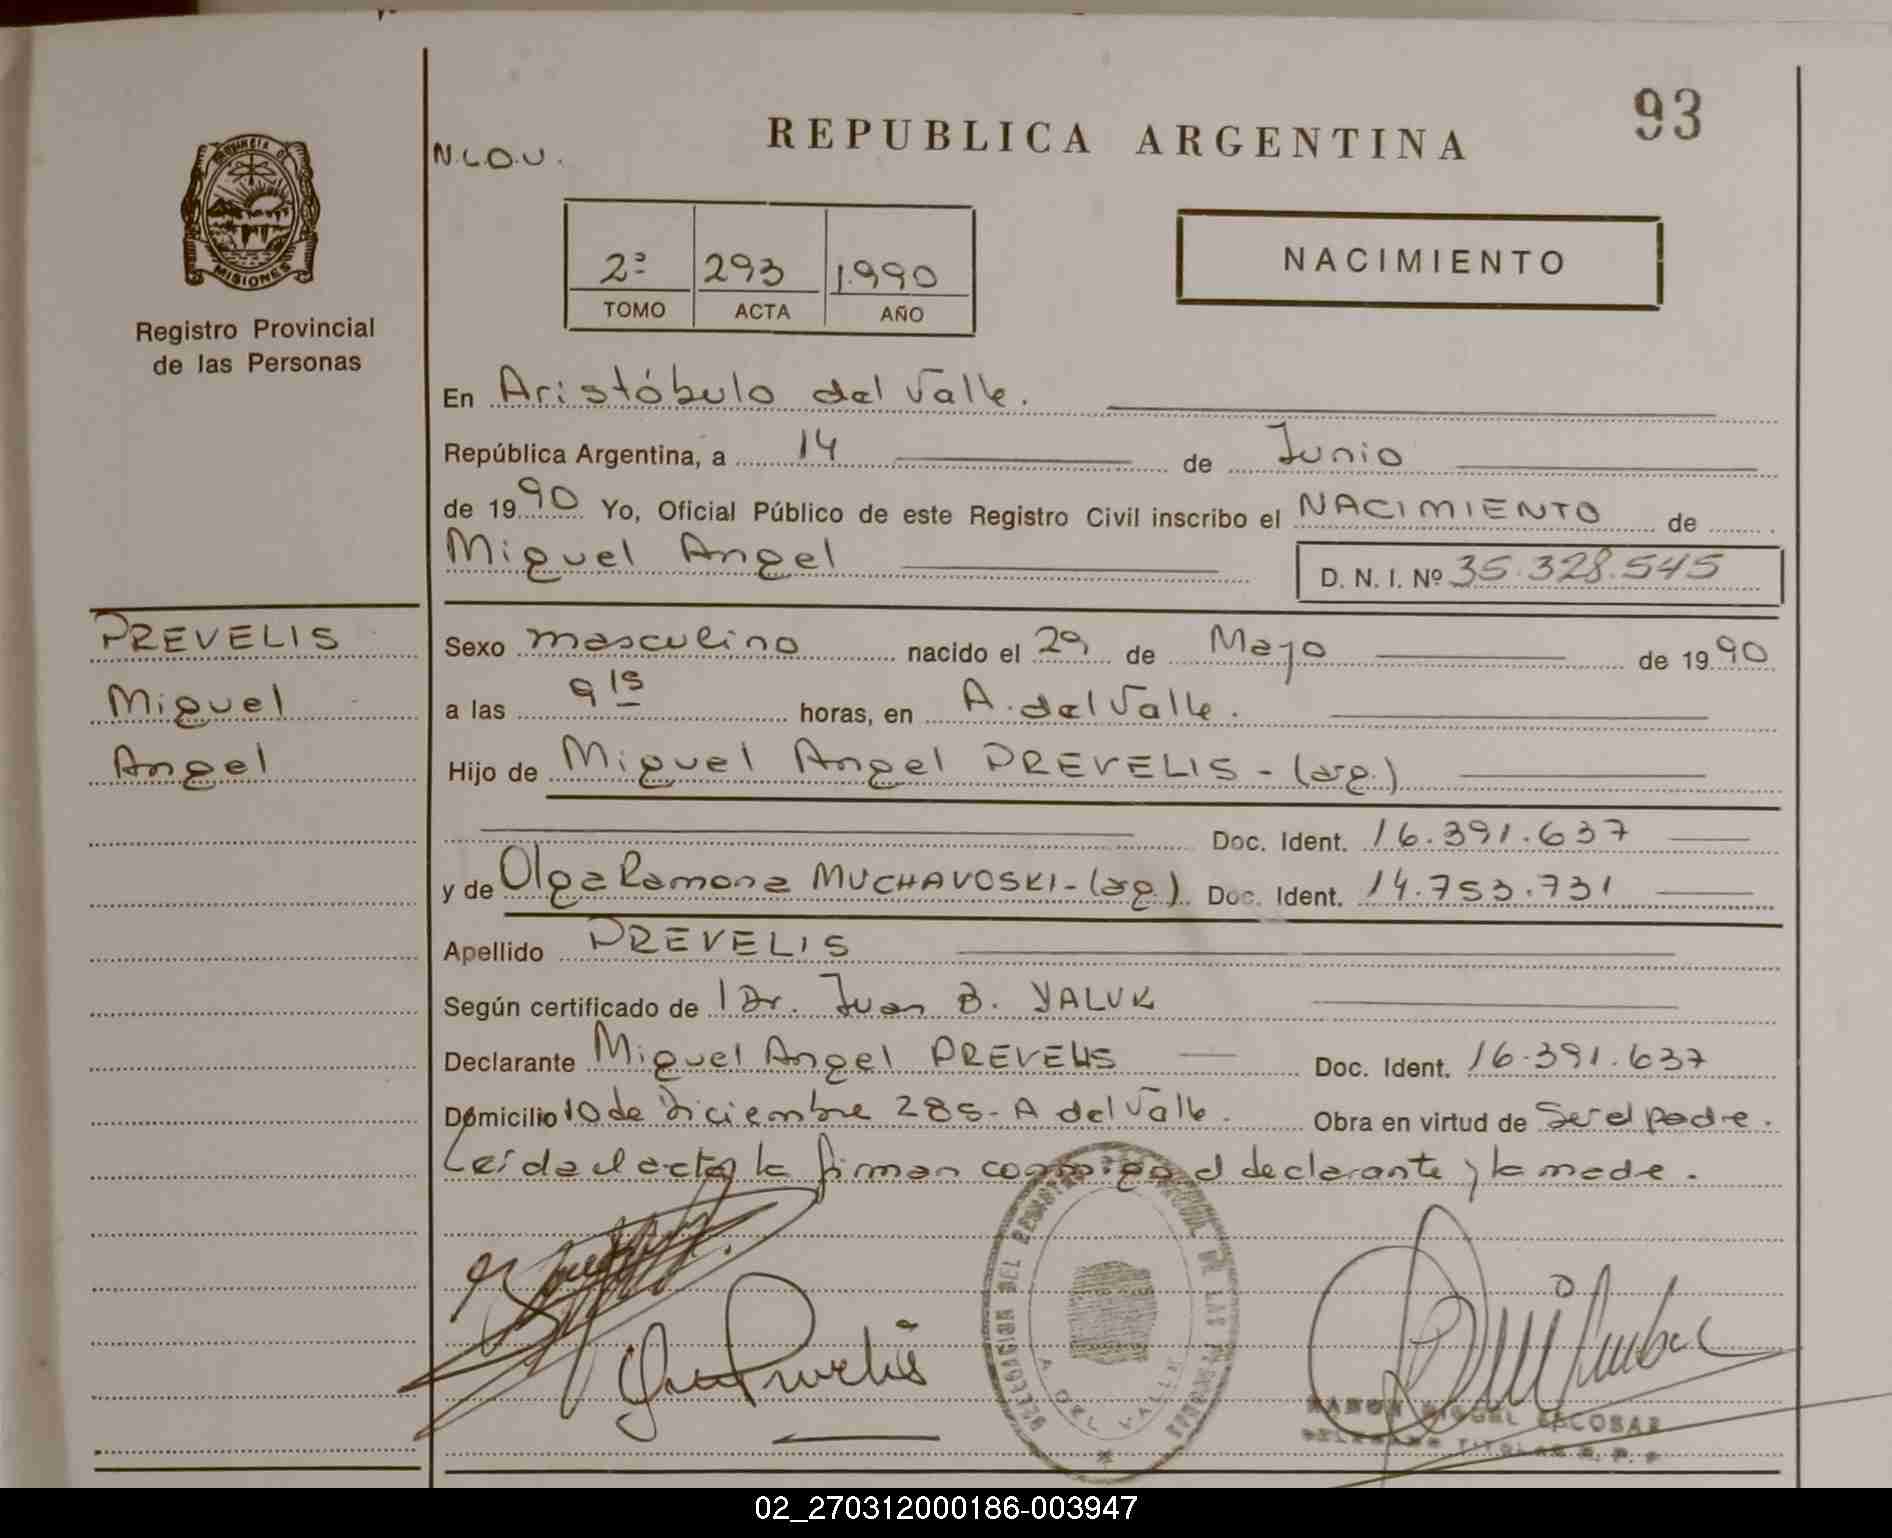 93
REPUBLICA ARGENTINA
N.L.O.U.
PROVINCIA DE
MISIONES
Registro Provincial
de las Personas
2º 293 1.990
TOMO ACTA AÑO
NACIMIENTO
En Aristóbulo del Valle.
República Argentina, a 14 de Junio
de 1990 Yo, Oficial Público de este Registro Civil inscribo el NACIMIENTO de
Miguel Angel D. N. I. Nº 35.328.545
PREVELIS
Miguel
Angel
Sexo masculino nacido el 29 de Mayo de 1990
a las 9 15 horas, en A. del Valle.
Hijo de Miguel Angel PREVELIS - (arg.)
Doc. Ident. 16.391.637
y de Olga Ramona MUCHAVOSKI - (arg.) Doc. Ident. 14.753.731
Apellido PREVELIS
Según certificado de l Dr. Juan B. YALUK
Declarante Miguel Angel PREVELIS Doc. Ident. 16.391.637
Domicilio 10 de Diciembre 285 - A del Valle. Obra en virtud de Ser el padre.
Leída el acta, la firman conmigo el declarante y la madre.
DELEGACION DEL REGISTRO PROVINCIAL DE LAS PERSONAS
A. DEL VALLE
RAMON MIGUEL ESCOBAR
DELEGADO TITULAR R. P. P.
02_270312000186-003947